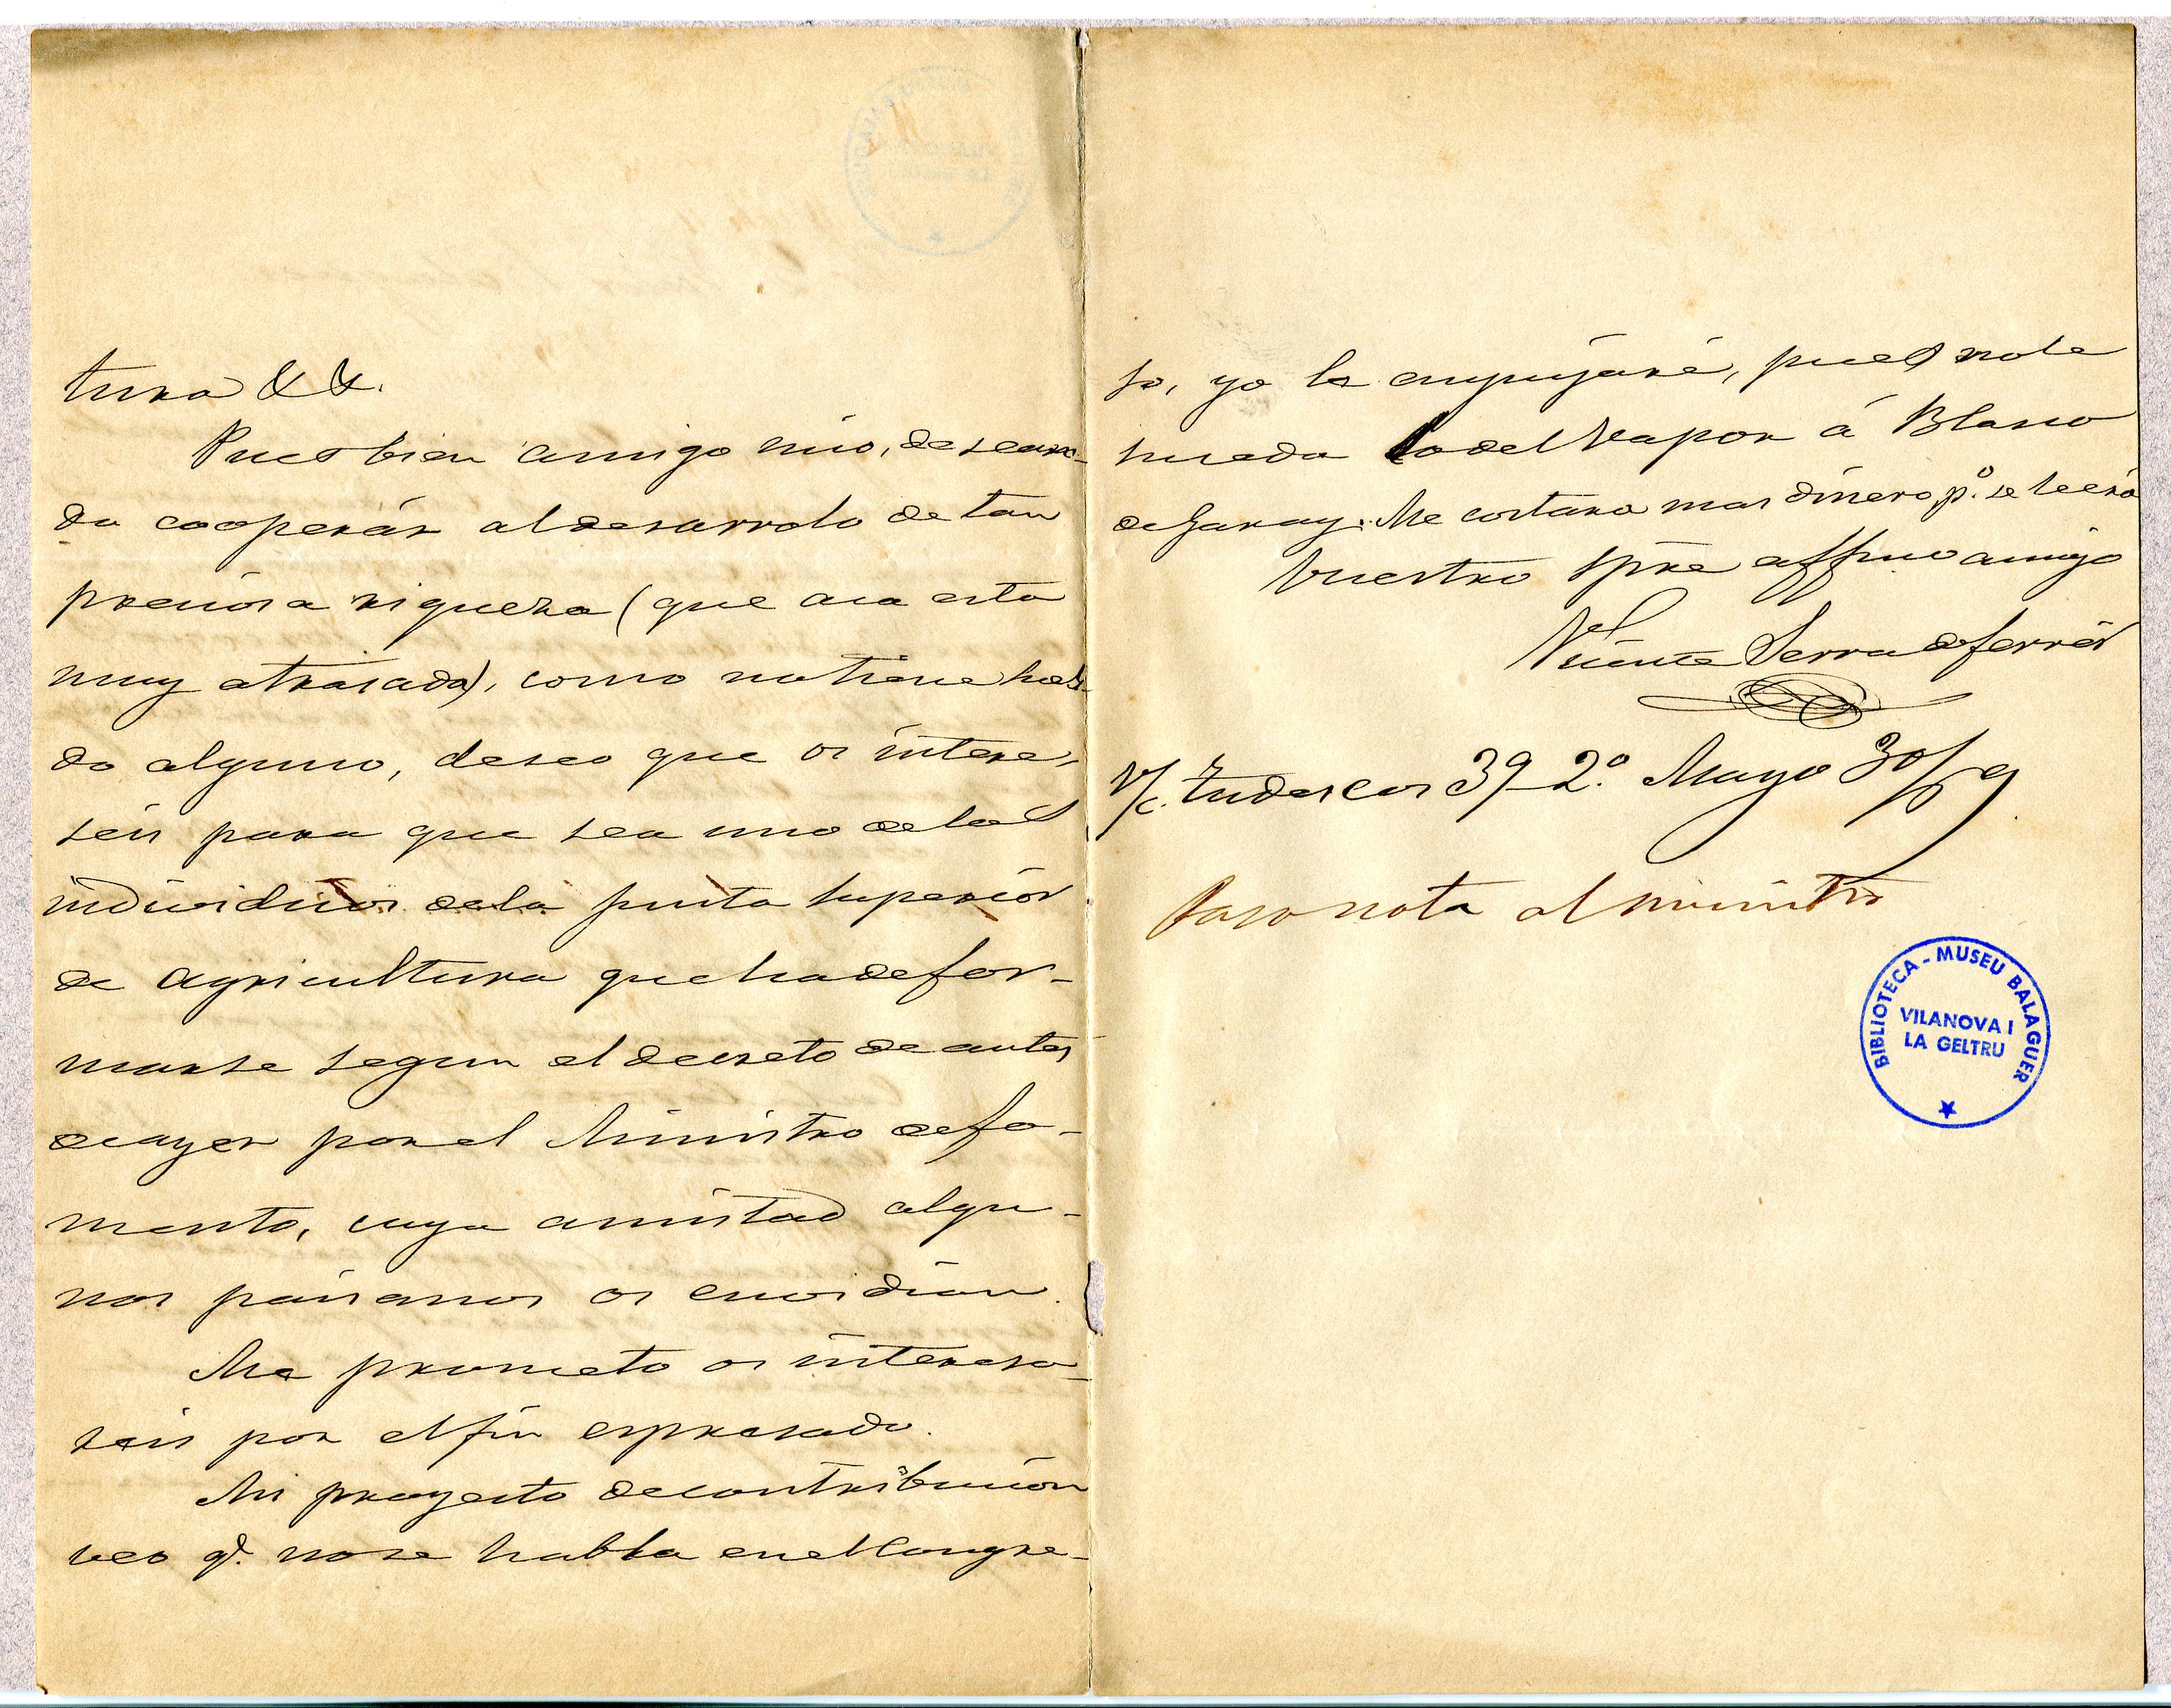 tura & &.
Pues bien amigo mio, desean-
do cooperár al desarrolo de tan
preciósa riqueza (que aca esta
muy atrásada), como no tiene hael-
do alguno, deseo que os intere-
seis para que sea uno de los
individuos de la junta superiór
de agricultura que ha de for-
marse segun el decreto de antes
de ayer por el Ministro de fo-
mento, cuya amistad algu-
nos paisanos os envidian.
Me prometo os interesa-
reis por el fin espresado.
Mi proyecto de contribución
veo q.e no se habla en el Congre-
so, yo lo empujaré, pues no le
suceda lo del Vapor á Blasco
de Garay. Me costara mas dinero p.o se leerá
Vuestro spre affmo amigo
Vicente Serra de ferrér
V/c. Tudescos 39-2.º Mayo 30/59
Paso nota al ministro
BIBLIOTECA - MUSEU BALAGUER
VILANOVA I
LA GELTRU